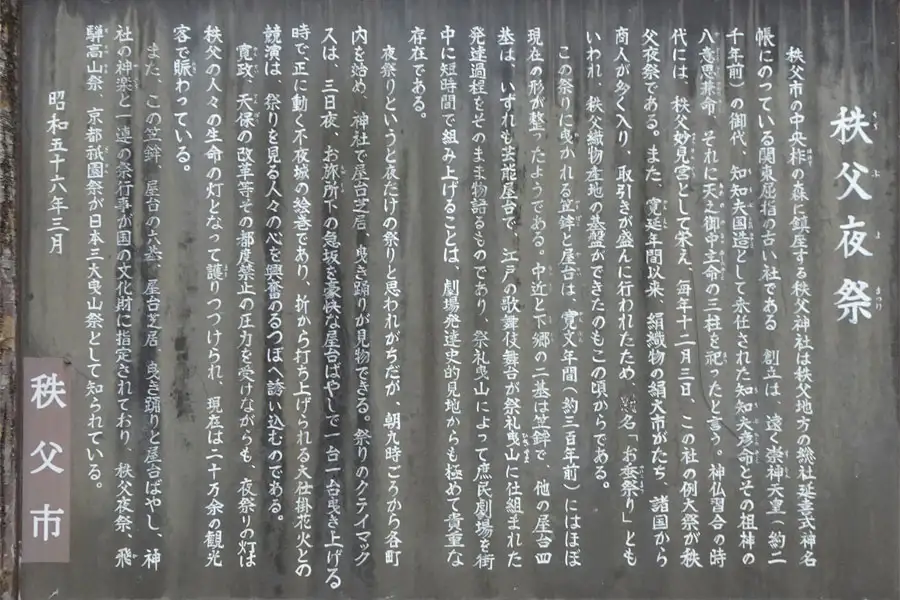 秩父夜祭
秩父市の中央柞の森に鎮座する秩父神社は秩父地方の総社延喜式神名
帳にのっている関東屈指の古い社である 創立は、遠く崇神天皇(約二
千年前)の御代、知知夫国造として永任された知知夫彦命とその祖神の
八意思兼命、それに天之御中主命の三柱を祀ったと言う。神仏習合の時
代には、秩父妙見宮として栄え、毎年十二月三日、この社の例大祭が秩
父夜祭である。また、寛延年間以来、絹織物の絹大市がたち、諸国から
商人が多く入り、取引きが盛んに行われたため、別名「お蚕祭り」とも
いわれ、秩父織物産地の基盤ができたのもこの頃からである。
この祭りに曳かれる笠鉾と屋台は、寛文年間(約三百年前)にはほぼ
現在の形が整ったようである。中近と下郷の二基は笠鉾で、他の屋台四
基は、いずれも芸能屋台で、江戸の歌舞伎舞台が祭礼曳山に仕組まれた
発達過程をそのまま物語るものであり、祭礼曳山によって庶民劇場を街
中に短時間で組み上げることは、劇場発達史的見地からも極めて貴重な
存在である。
夜祭りというと夜だけの祭りと思われがちだが、朝九時ごろから各町
内を始め、神社で屋台芝居、曳き踊りが見物できる。祭りのクライマック
スは、三日夜、お旅所下の急坂を豪快な屋台ばやしで一台一台曳き上げる
時で正に動く不夜城の絵巻であり、折から打ち上げられる大仕掛花火との
競演は、祭りを見る人々の心を興奮のるつぼへ誘い込むのである。
寛政、天保の改革等その都度禁止の圧力を受けながらも、夜祭りの灯は
秩父の人々の生命の灯となって護りつづけられ、現在は二十万余の観光
客で賑わっている。
また、この笠鉾、屋台の六基、屋台芝居、曳き踊りと屋台ばやし、神
社の神楽と一連の祭行事が国の文化財に指定されており、秩父夜祭、飛
騨高山祭、京都祇園祭が日本三大曳山祭として知られている。
昭和五十六年三月
秩父市